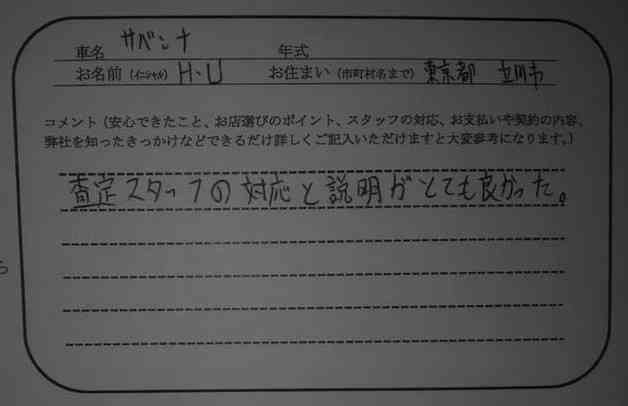 車名 サバンナ 年式
お名前（イニシャル） H.U お住まい（市町村名まで） 東京都 立川市
コメント（安心できたこと、お店選びのポイント、スタッフの対応、お支払いや契約の内容、
弊社を知ったきっかけなどできるだけ詳しくご記入いただけますと大変参考になります。）
査定スタッフの対応と説明がとても良かった。